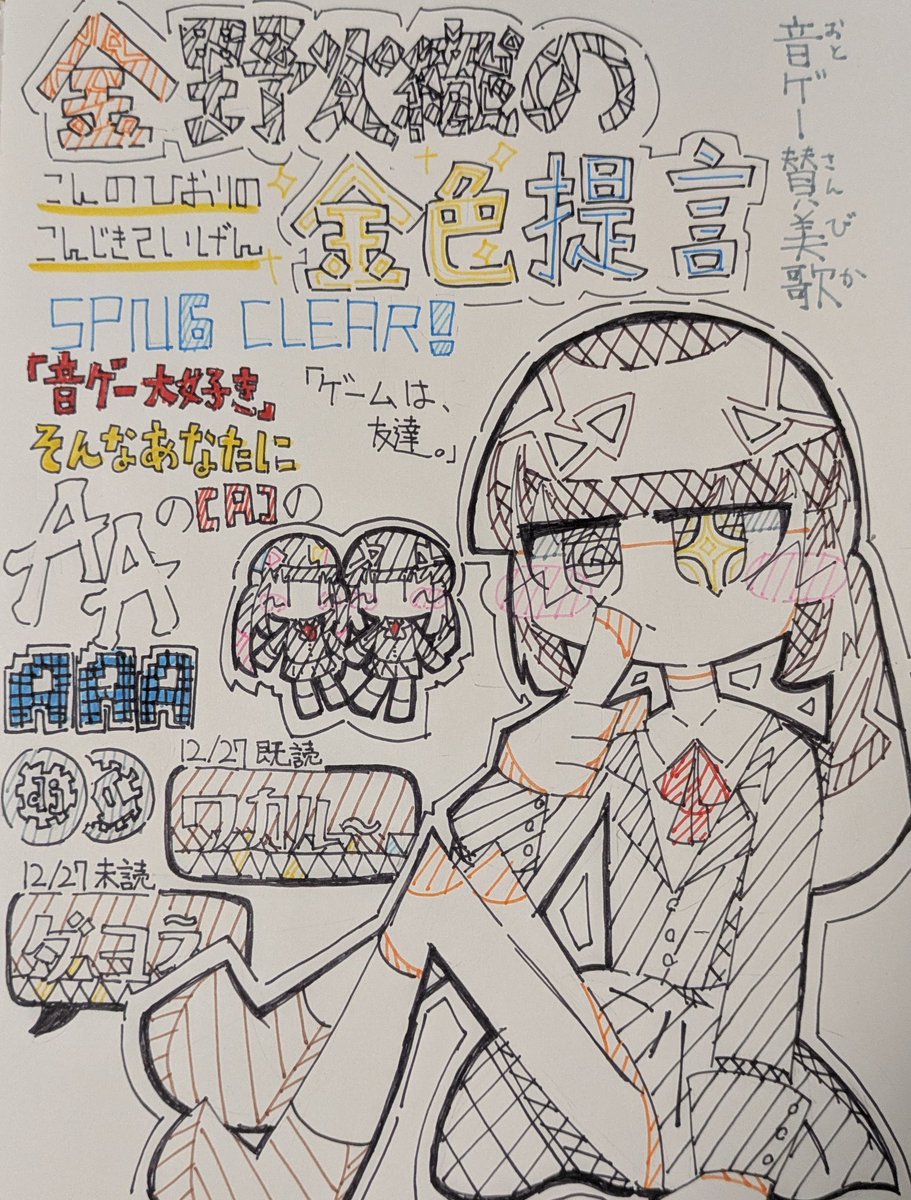 金野火織の
金色提言
こんのひおりの
こんじきていげん
音ゲー賛美歌
おと
さんびか
SPNUG CLEAR!
「音ゲー大好き」
そんなあなたに
「ゲームは、
友達。」
AAの[A]の
AAA
12/27 既読
ワカル～
12/27 未読